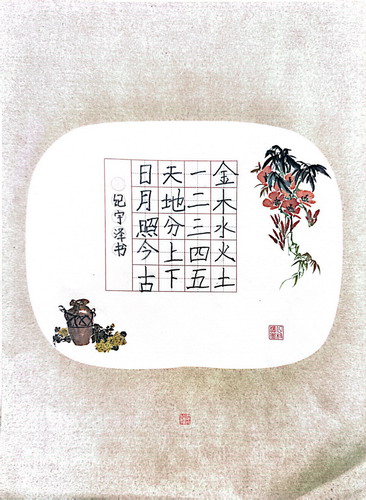 金木水火土
一二三四五
天地分上下
日月照今古
宇泽书